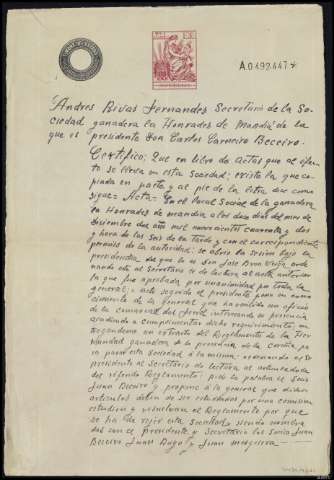 A0492447*
Andres Rivas Fernandez Secretario de la So-
ciedad ganadera la Honradez de Mandiá de la
que es presidente Don Carlos Carneiro Beceiro.
Certifico; Que en libro de actas que al efec-
to se lleva en esta Sociedad; existe la que co-
piada en parte y al pie de la letra dice como
sigue = Acta = En el local Social de la ganadera
la Honradez de mandia a los dias del mes de
diciembre del año mil novecientos cuarenta y dos
y hora de las seis de la tarde y con el correspondiente
permiso de la autoridad; se abrio la sesion bajo la
presidencia de que lo es Don Jose or-
denando este al Secretario de lectura al acta anterior
la que fue aprobada por unanimidad por toda la
general; acto seguido el presidente pone en cono-
cimiento de la general que ha recibido un oficio
de la comarcal del ferrol interesando su presencia
acudiendo a cumplimentar dicho requerimiento, en-
tregandome un extracto del Reglamento de la Her-
mandad ganadera de la provincia de la Coruña pa-
ra pasar esta Sociedad a la misma; ordenando el
presidente al Secretario de lectura al articulado
del referido Reglamento; pide la palabra el Socio
Juan Beceiro y propone a la general que dichos
articulos deben de ser estudiados por una comision
estudien y el Reglamento por que
se ha de rejir esta sociedad, siendo nombra-
dos con el Presidente y Secretario los Socios Juan
Beceiro Juan y Juan mosquera